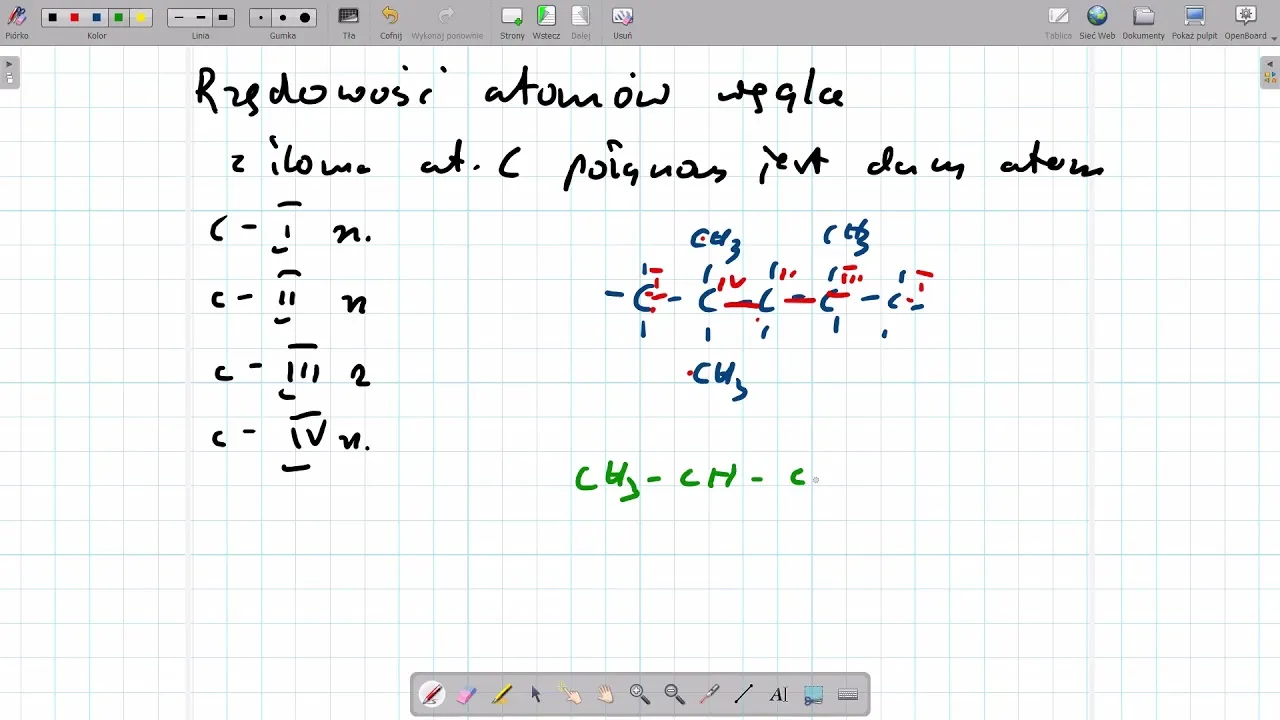 Piórko Kolor Linia Gumka Tła Cofnij Wykonaj ponownie Strony Wstecz Dalej Usuń Tablica Sieć Web Dokumenty Pokaż pulpit OpenBoard
Rzędowość atomów węgla
z iloma at. C połączony jest dany atom
C - I rz.
C - II rz
C - III rz
C - IV rz.
CH3 CH3
I IV II III I
- C - C - C - C - C -
CH3
CH3 - CH - C
AI